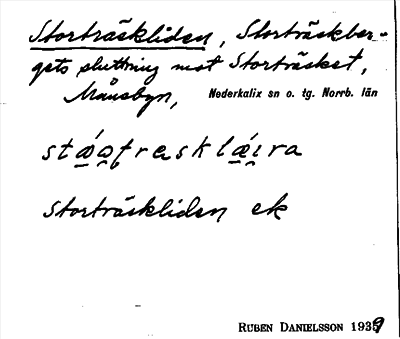 Storträskliden, Storträskber-
gets sluttning mot Storträsket,
Månsbyn, Nederkalix sn o. tg. Norrb. län
Storträskliden ek
RUBEN DANIELSSON 1939